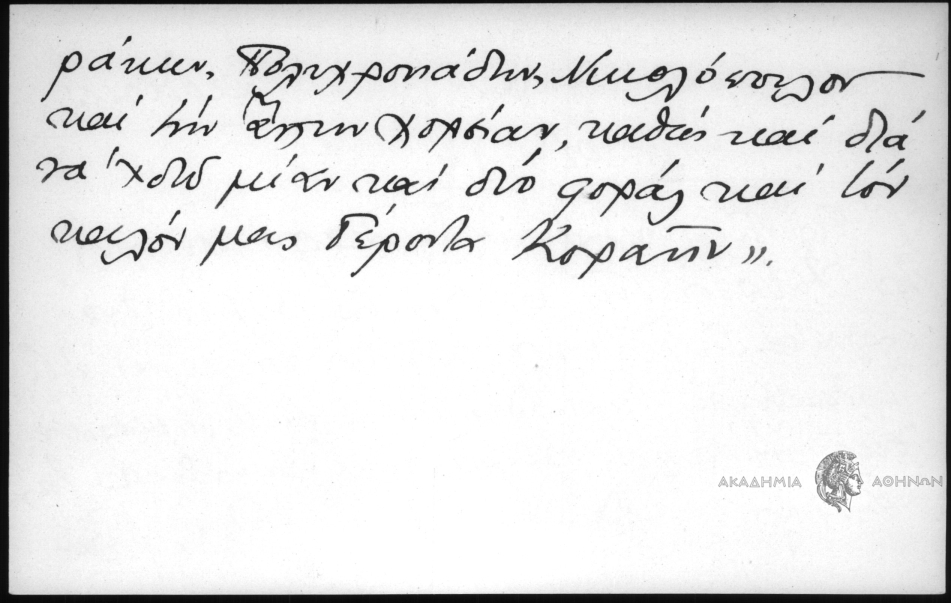 ράκην, Πολυχρονιάδην, Νικολόπουλον
καί τήν ἄλλην χορείαν, καθώς καί διά
νά ἰδῶ μίαν καί δύο φοράς καί τόν
καλόν μας Γέροντα Κοραῆν».
ΑΚΑΔΗΜΙΑ ΑΘΗΝΩΝ